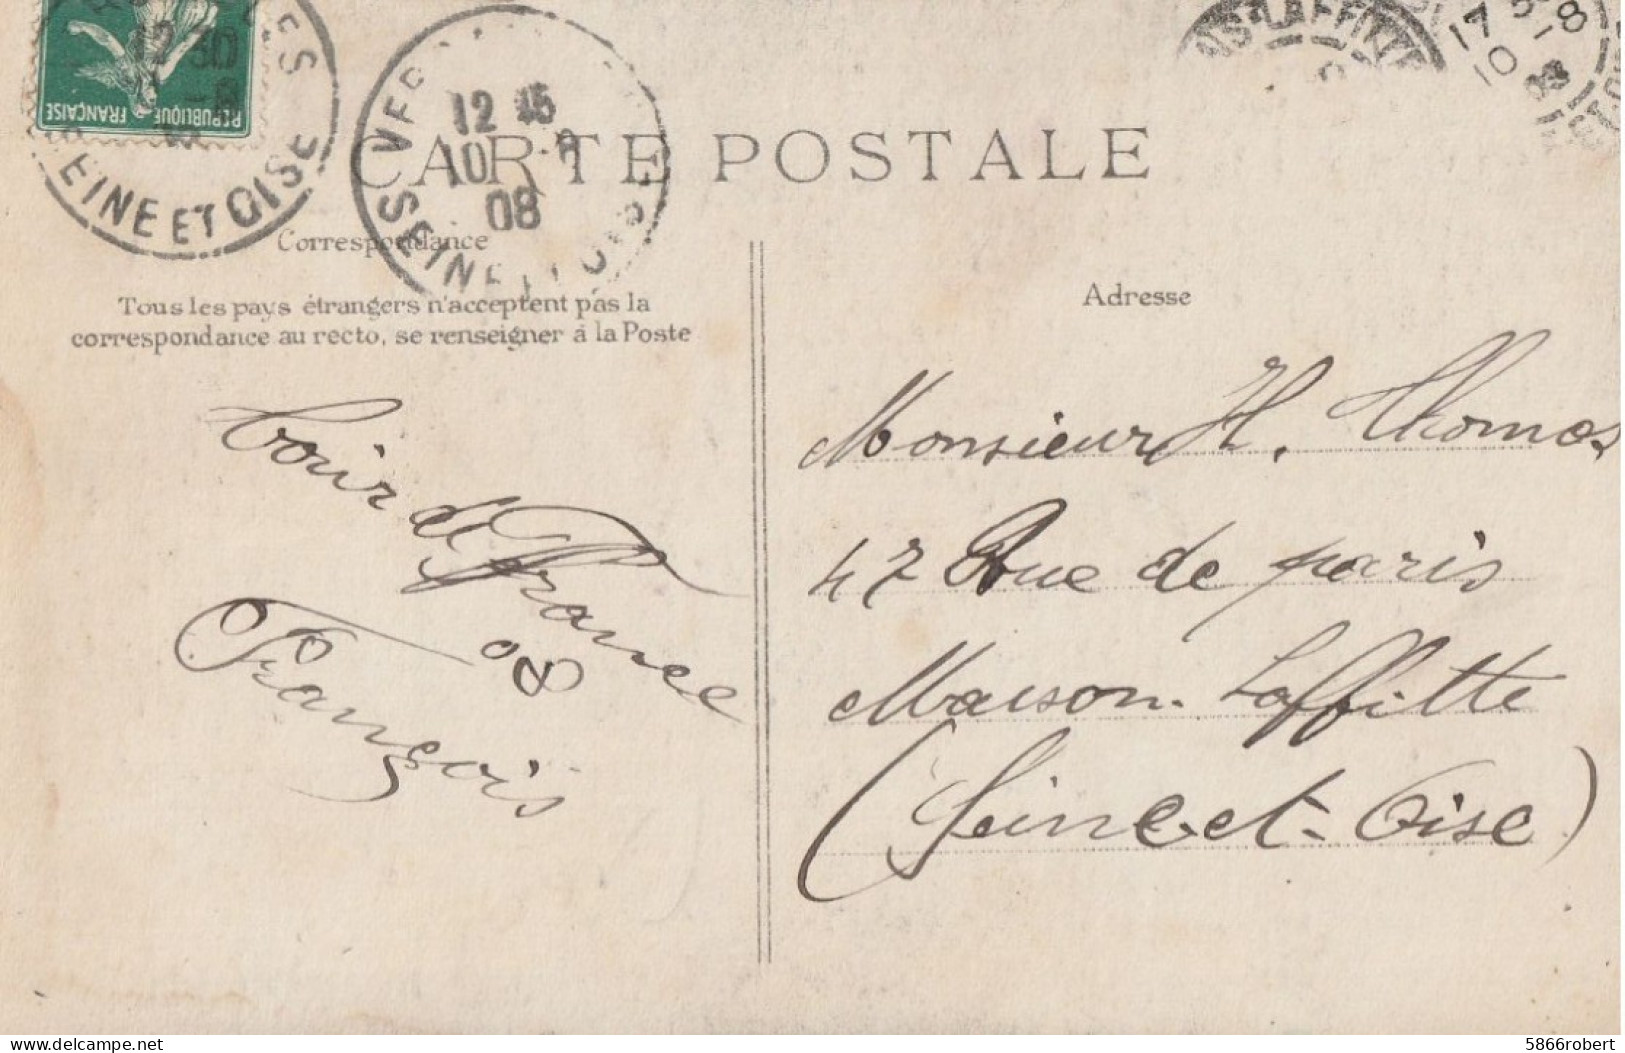 RÉPUBLIQUE FRANÇAISE
12 30
EINE ET OISE
12 45
10 -8
08
SEINE
17
10 -8
08
CARTE POSTALE
Correspondance
Tous les pays étrangers n'acceptent pas la
correspondance au recto, se renseigner à la Poste
Adresse
Monsieur H. Thomas
47 Rue de paris
Maison. Laffitte
(Seine-et-Oise)
de France
&
François
5866robert